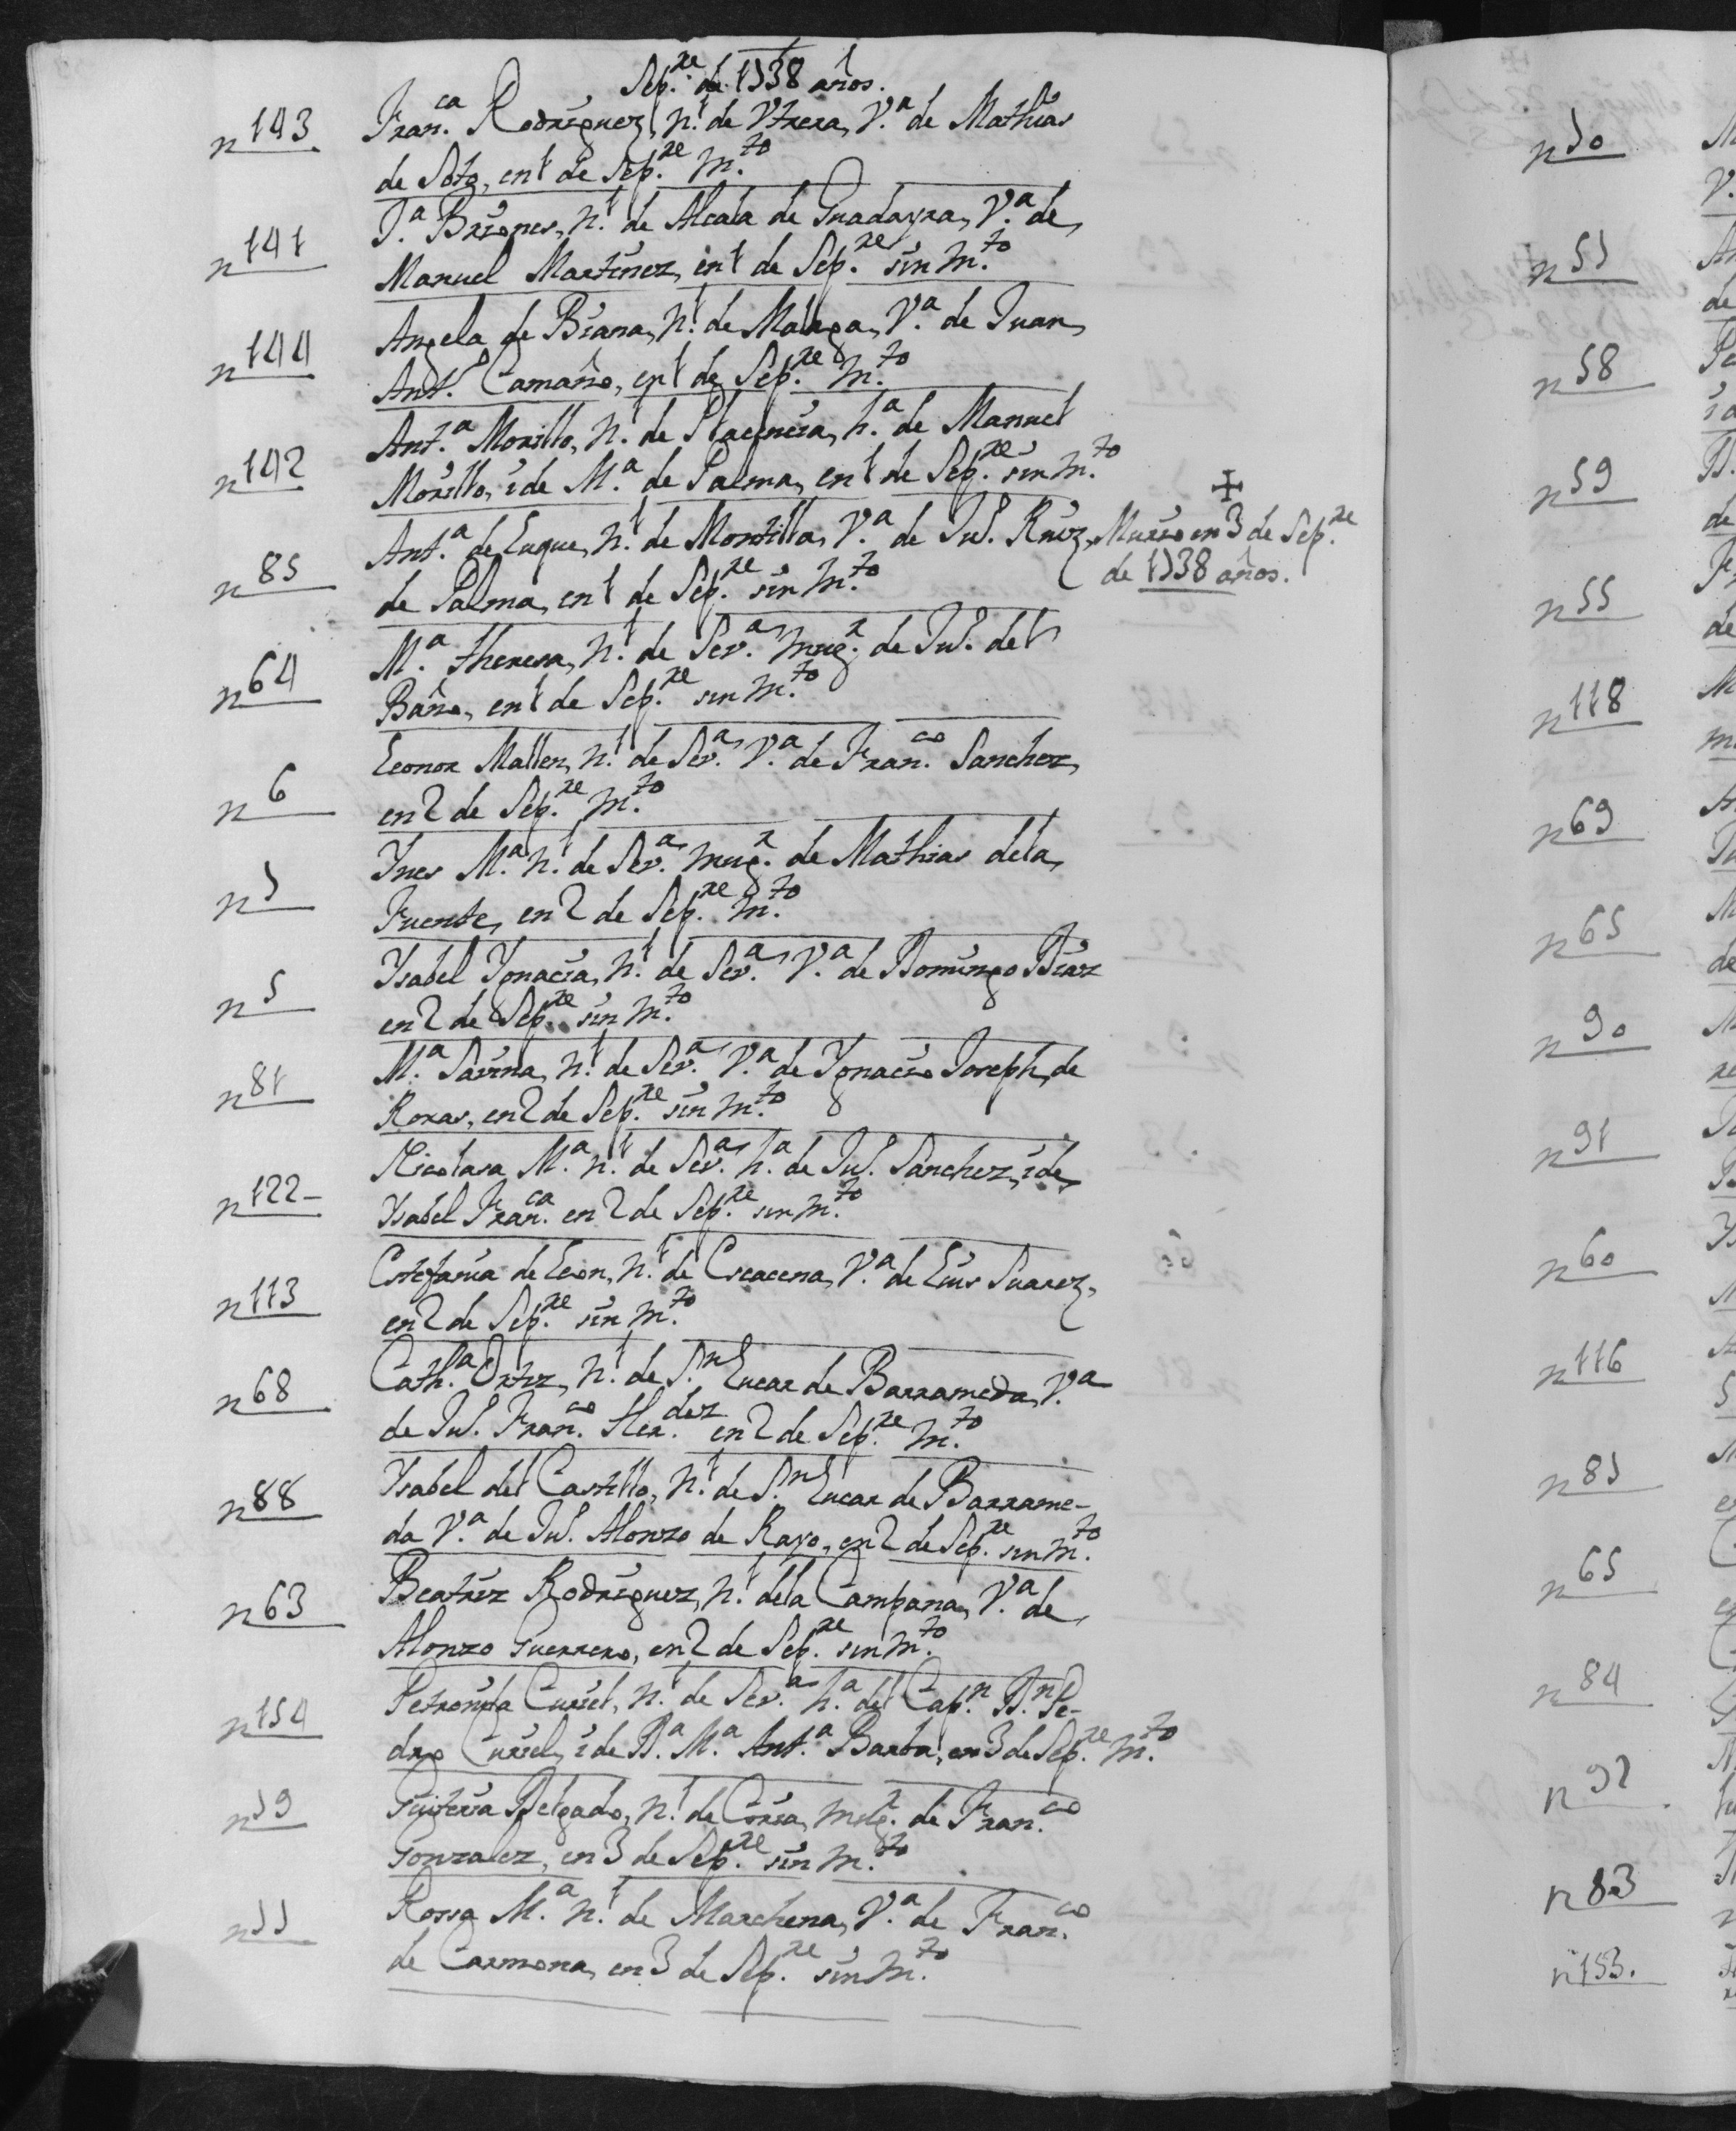 Sep.re de 1738 años.
n 143 Fran.ca Rodriguez, n.l de Vtrera, V.a de Mathias
de Soto, en 1 de Sep.re m.to
n 141 J.a Briones, n.l de Alcala de Guadayra, V.a de
Manuel Martinez, en 1 de Sep.re sin m.to
n 144 Angela de Biana, n.l de Malaga, V.a de Juan
Ant.o Camaño, en 1 de Sep.re m.to
n 142 Ant.a Morillo, n.l de Placencia, h.a de Manuel
Morillo, i de M.a de Palma, en 1 de Sep.re sin m.to
n 85 Ant.a de Luque, n.l de Montilla, V.a de Ju.o Ruiz
de Palma, en 1 de Sep.re sin m.to
Murio en 3 de Sep.re
de 1738 años.
n 64 M.a theresa, n.l de Sev.a mug.r de Ju.o del
Baño, en 1 de Sep.re sin m.to
n 6 Leonor Mallen, n.l de Sev.a V.a de Fran.co Sanchez,
en 2 de Sep.re m.to
n 7 Ynes M.a n.l de Sev.a mug.r de Mathias dela
Fuente, en 2 de Sep.re m.to
n 5 Ysabel Ygnacia, n.l de Sev.a V.a de Domingo Diaz
en 2 de Sep.re sin m.to
n 81 M.a Savina, n.l de Sev.a V.a de Ygnacio Joseph de
Roxas, en 2 de Sep.re sin m.to
n 122 Nicolasa M.a n.l de Sev.a h.a de Ju.o Sanchez, i de
Ysabel Fran.ca en 2 de Sep.re sin m.to
n 113 Estefania de Leon, n.l de Escacena, V.a de Luis Suarez,
en 2 de Sep.re sin m.to
n 68 Cath.a Ortiz, n.l de S.n Lucar de Barrameda, V.a
de Ju.o Fran.co Her.dez en 2 de Sep.re m.to
n 88 Ysabel del Castillo, n.l de S.n Lucar de Barrame-
da V.a de Ju.o Alonzo de Rayo, en 2 de Sep.re sin m.to
n 63 Beatriz Rodriguez, n.l dela Campana, V.a de
Alonzo Guerrero, en 2 de Sep.re sin m.to
n 154 Petronila Curiel, n.l de Sev.a h.a del Cap.n D.n Pe-
dro Curiel, i de D.a M.a Ant.a Barba, en 3 de Sep.re m.to
n 79 Guiteria Delgado, n.l de Coria, mug.r de Fran.co
Gonzalez, en 3 de Sep.re sin m.to
n 77 Rossa M.a n.l de Marchena, V.a de Fran.co
de Carmona, en 3 de Sep.re sin m.to
n 70
n 57
n 58
n 59
n 55
n 118
n 69
n 65
n 90
n 91
n 60
n 116
n 87
n 65
n 84
n 92
n 83
n 153.